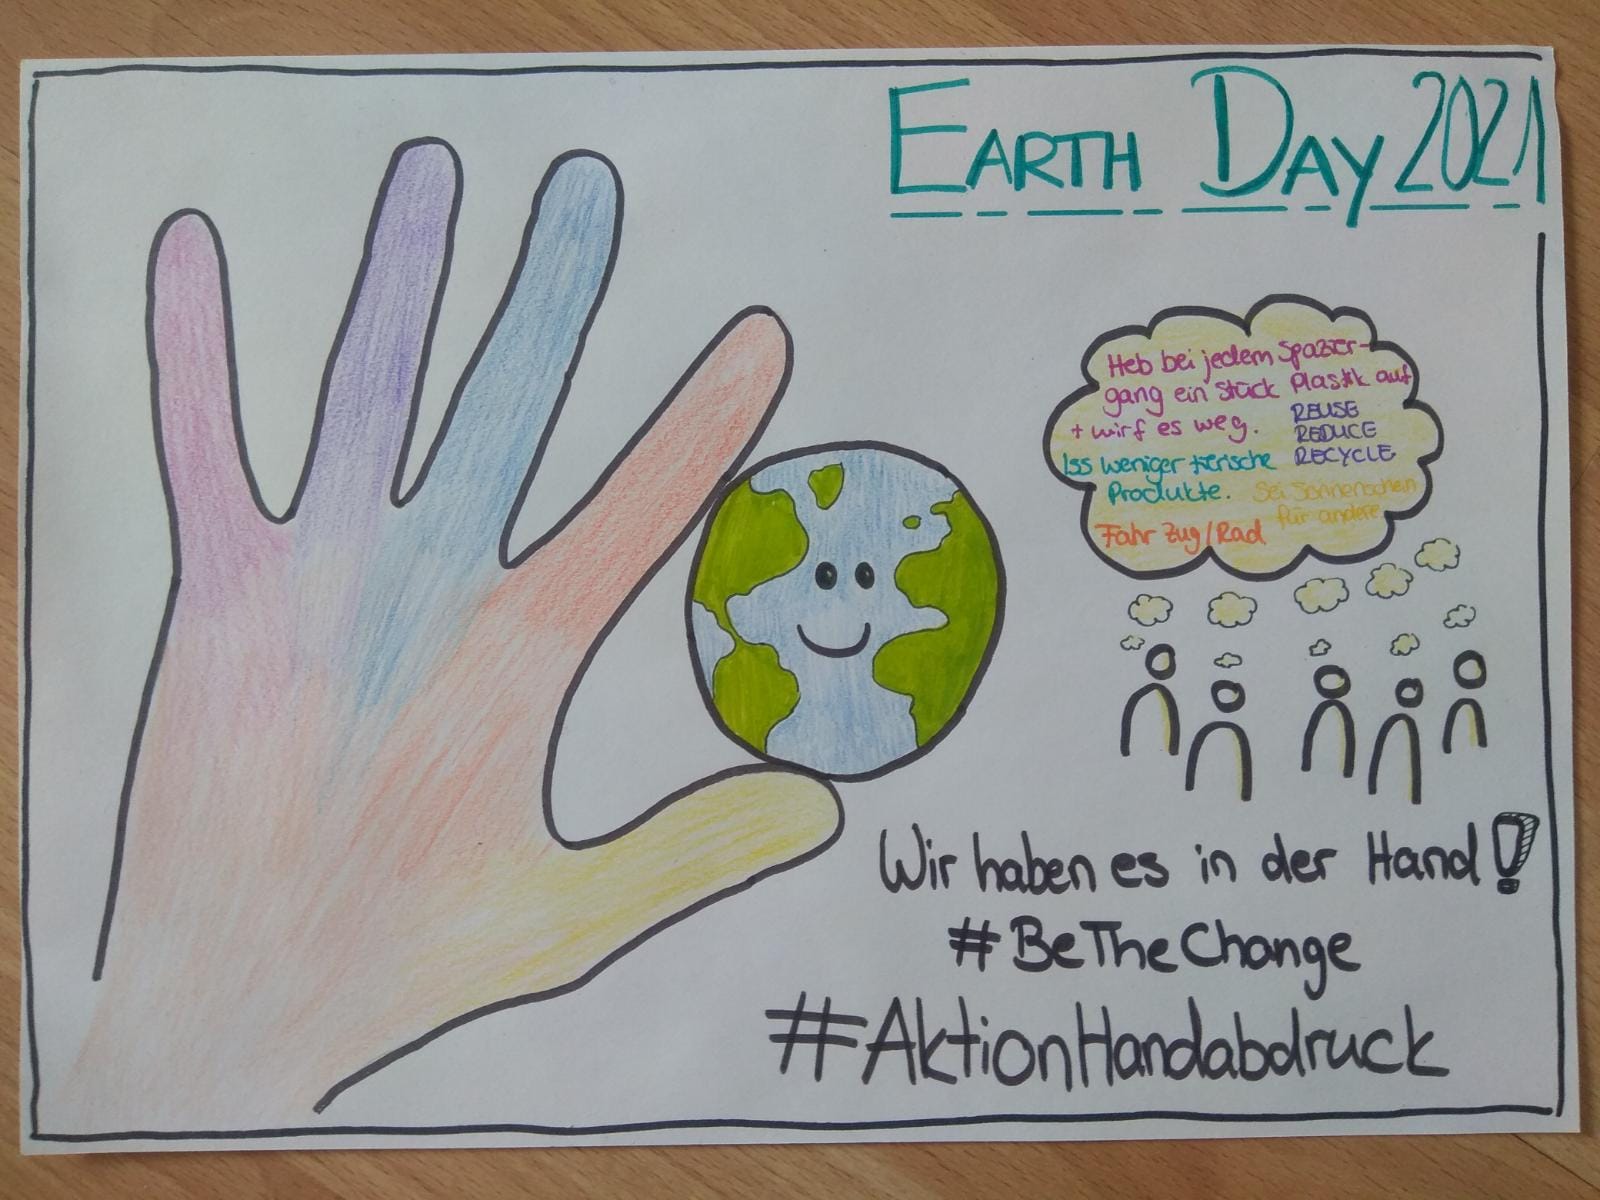 EARTH DAY 2021
Heb bei jedem Spazier-
gang ein Stück Plastik auf
+ wirf es weg.
REUSE
REDUCE
RECYCLE
Iss weniger tierische
Produkte.
Sei Sonnenschein
für andere
Fahr Zug/Rad
Wir haben es in der Hand!
#BeTheChange
#AktionHandabdruck